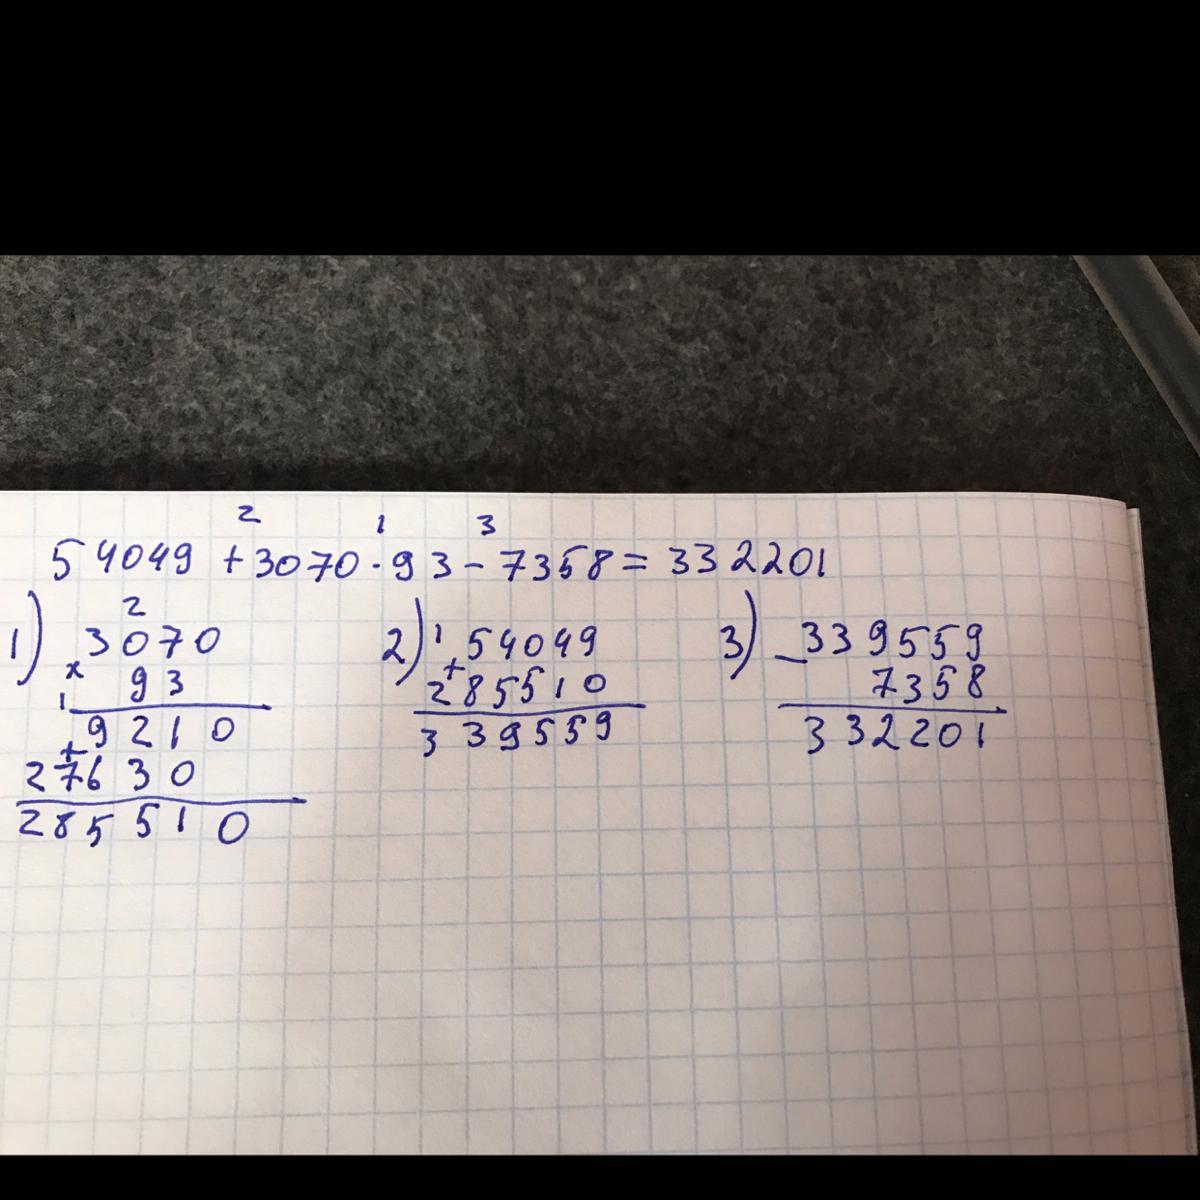 2 1 3
54049 + 3070 · 93 - 7358 = 332201
1) 2
3070
x 93
1
+ 9210
27630
285510
2) 1 54049
+ 285510
339559
3) - 339559
7358
332201